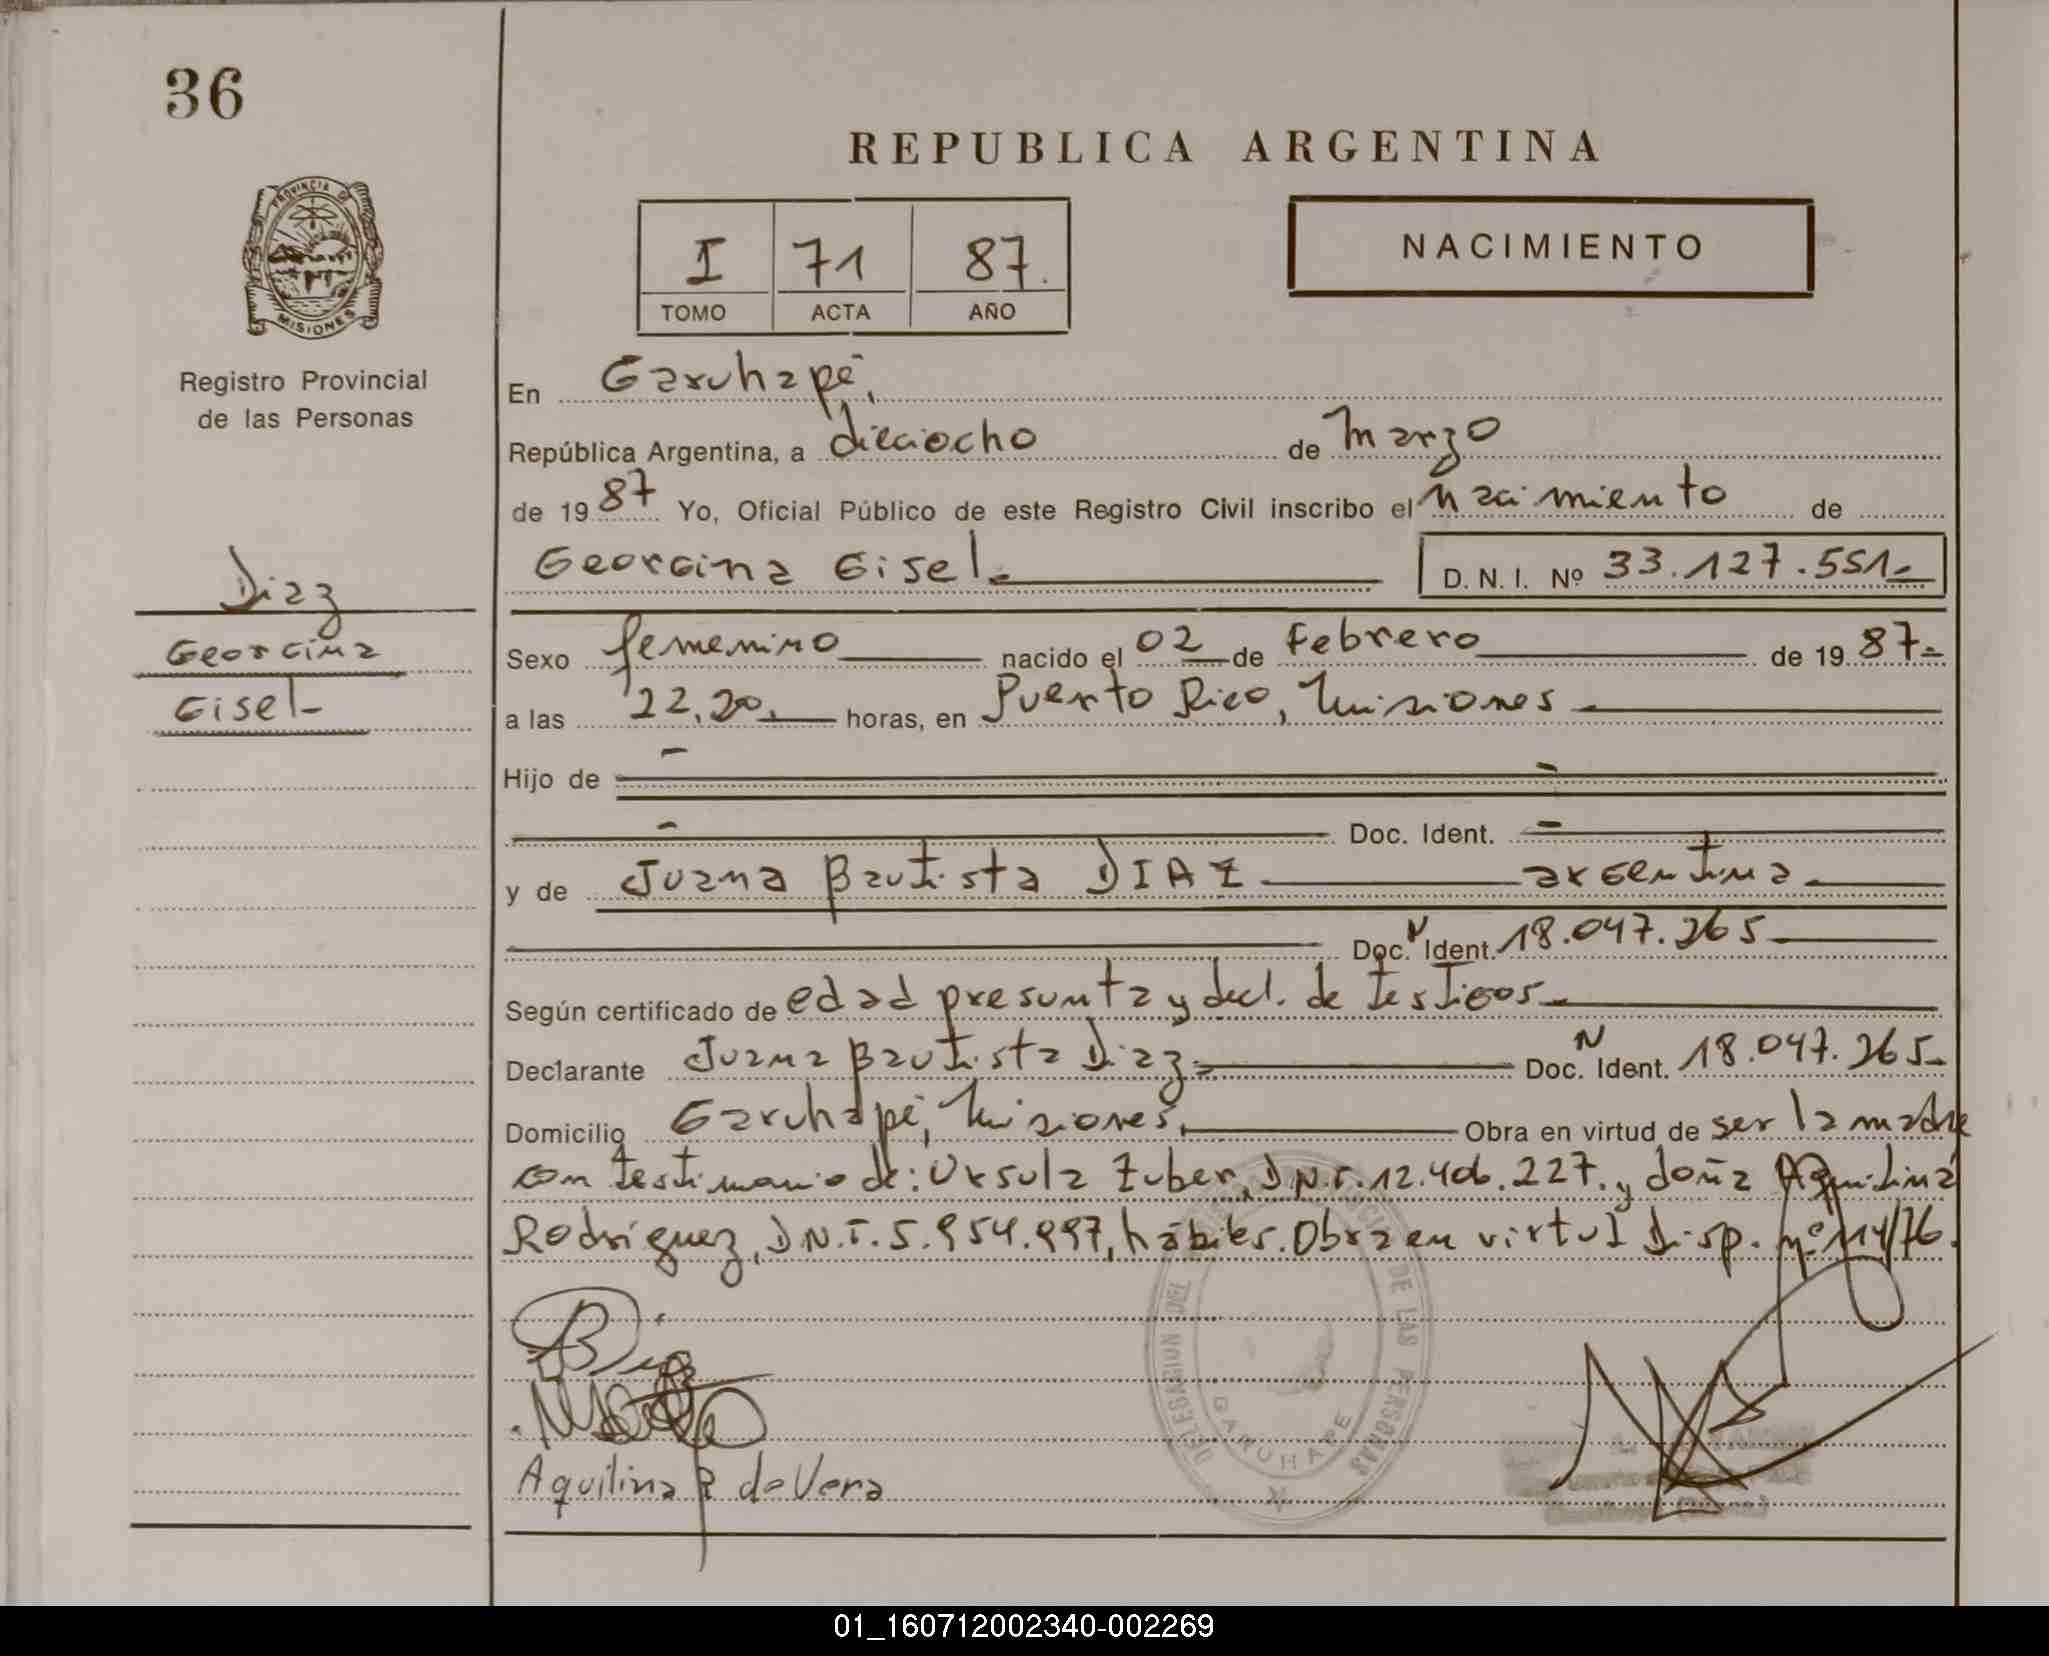 36
REPUBLICA ARGENTINA
PROVINCIA DE
MISIONES
Registro Provincial
de las Personas
I 71 87.
TOMO ACTA AÑO
NACIMIENTO
En Garuhapé,
República Argentina, a dieciocho de Marzo
de 1987 Yo, Oficial Público de este Registro Civil inscribo el Nacimiento de
Georgina Gisel.- D. N. I. Nº 33.127.551.-
Diaz
Georgina
Gisel-
Sexo femenino nacido el 02 de Febrero de 1987-
a las 22,20. horas, en Puerto Rico, Misiones
Hijo de
Doc. Ident.
y de Juana Bautista DIAZ argentina
Doc. N Ident. 18.047.265
Según certificado de edad presunta y decl. de testigos
Declarante Juana Bautista Diaz N Doc. Ident. 18.047.265-
Domicilio Garuhapé, Misiones. Obra en virtud de ser la madre
con testimonio de: Ursula Zuber, D.N.I. 12.406.227. y doña Aquilina
Rodríguez, D.N.I. 5.954.997, hábiles. Obra en virtud Disp. nº 114/76.
DELEGACION DEL DE LAS PERSONAS
GARUHAPE
Aquilina R de Vera
01_160712002340-002269